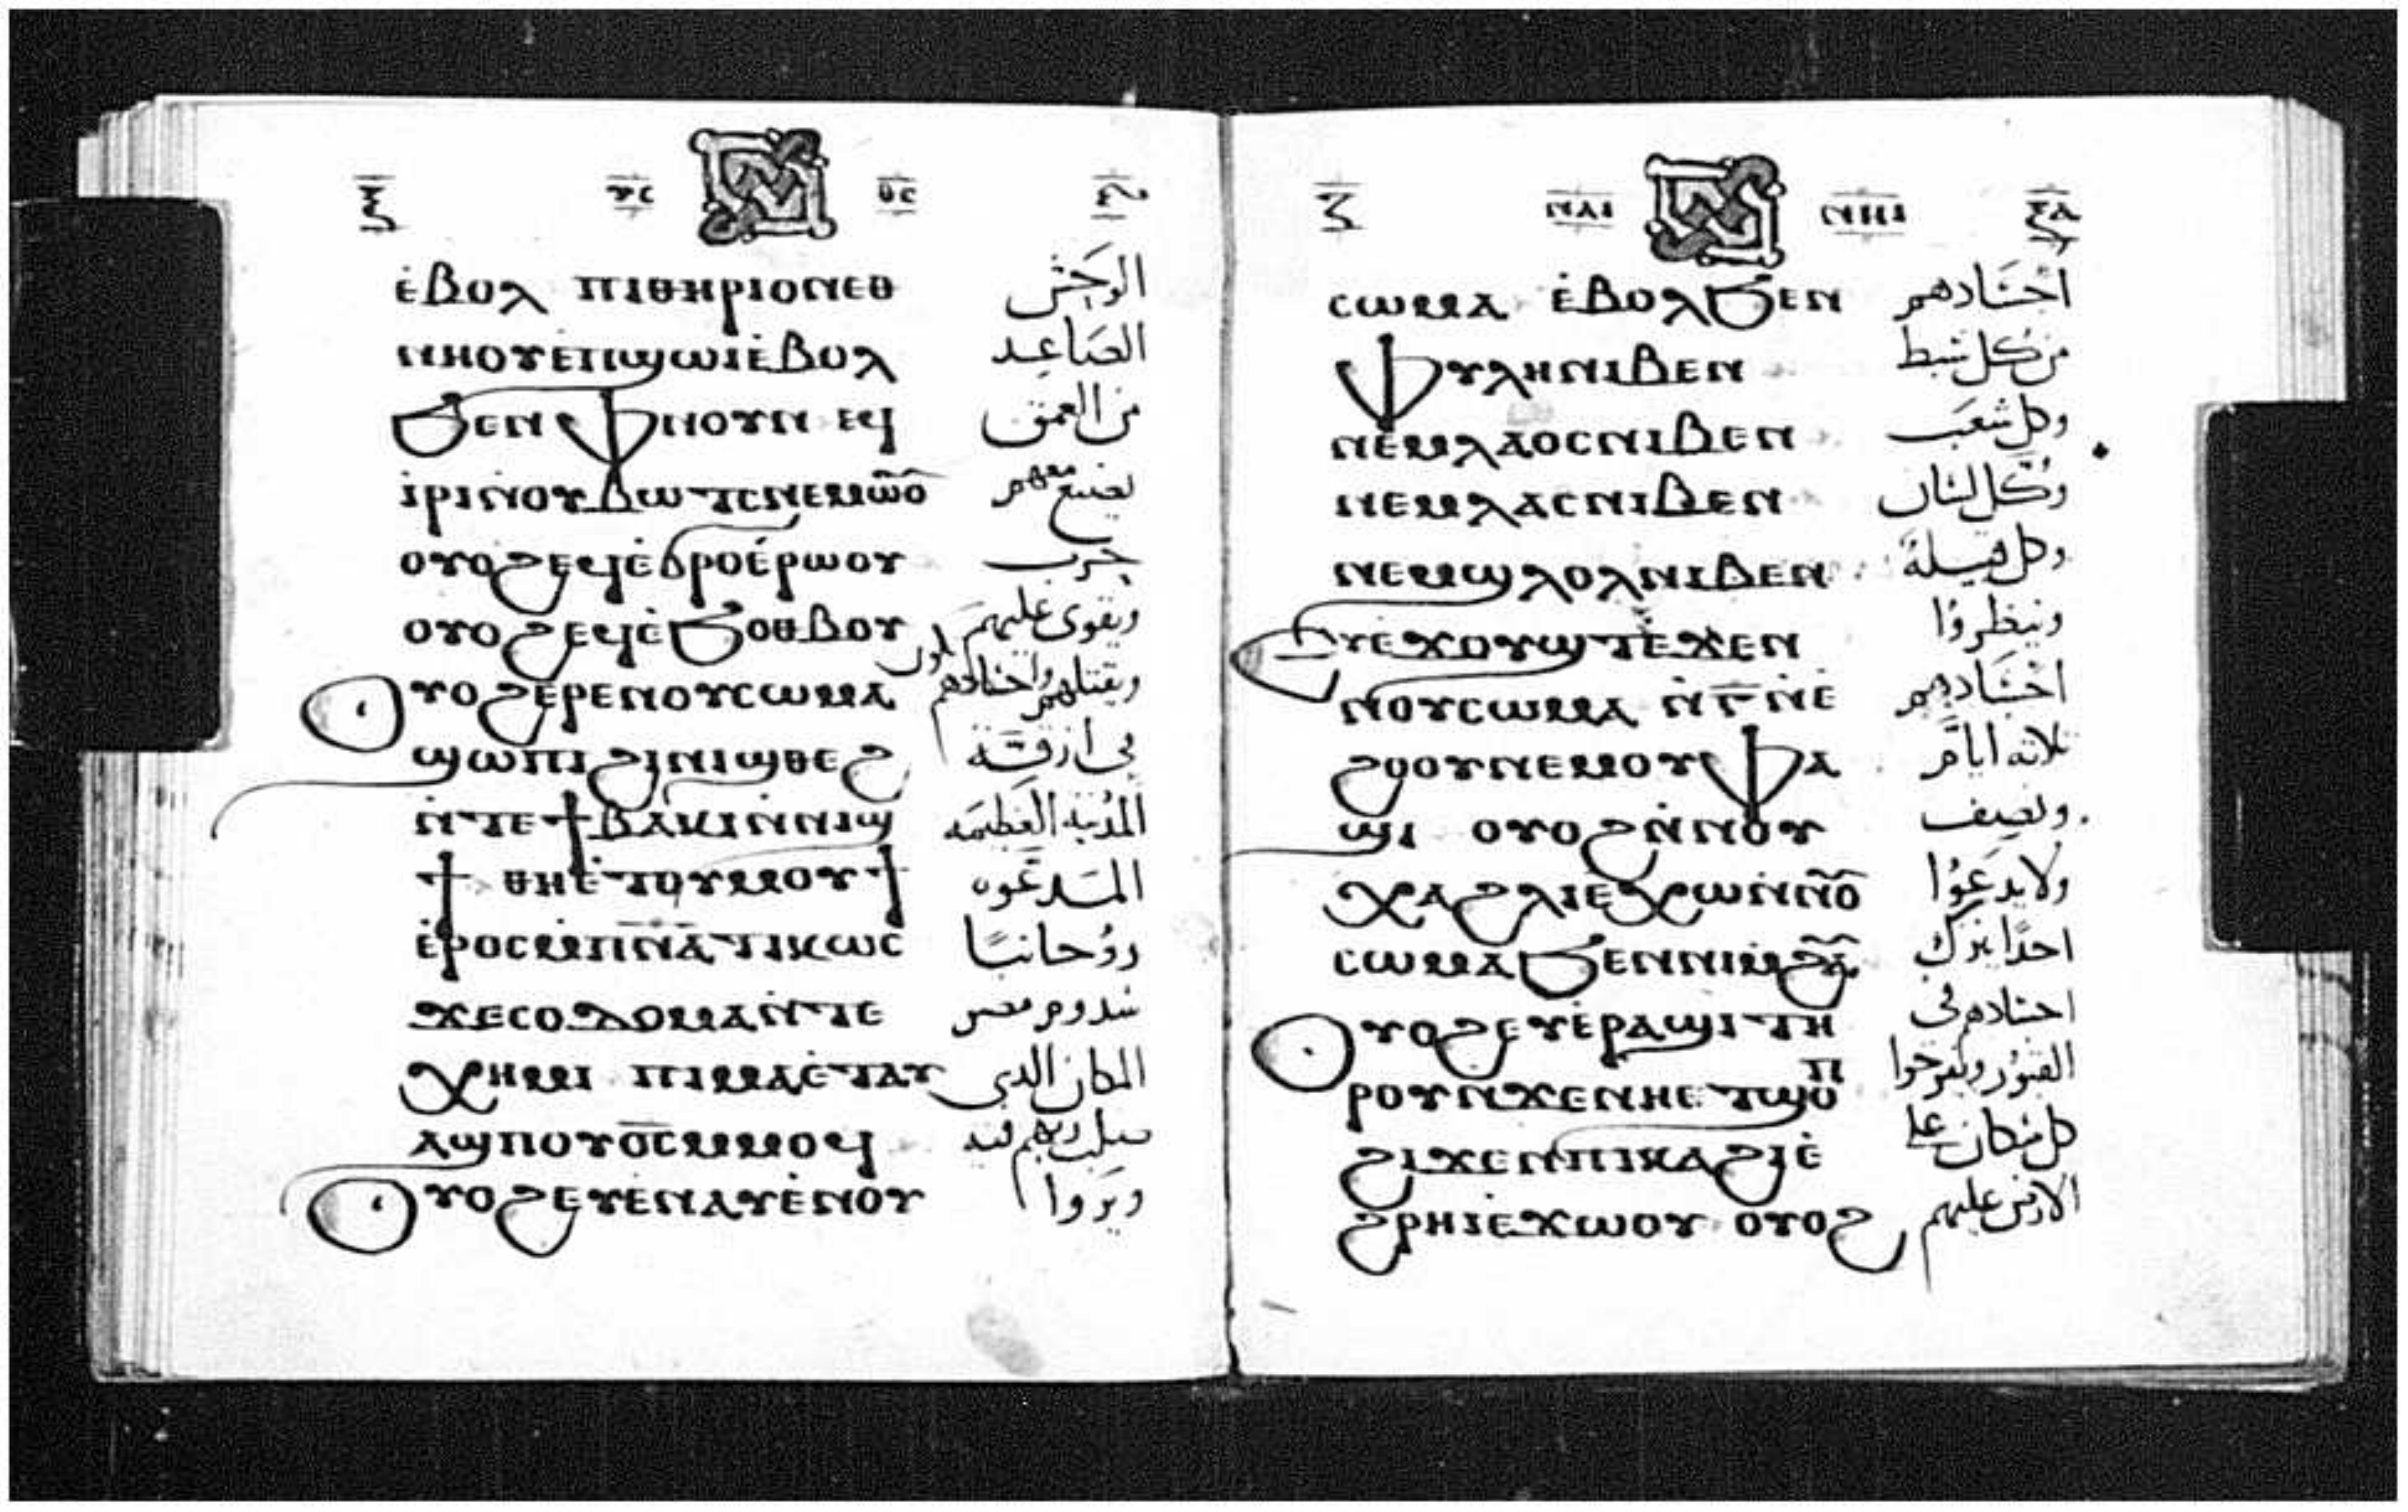 ⲝ ⲩⲥ ⲑⲥ
ⲉ̇ⲃⲟⲗ ⲡⲓⲑⲏⲣⲓⲟⲛⲉⲑ الوحش
ⲛⲏⲟⲩⲉ̇ⲡϣⲱⲓⲉ̇ⲃⲟⲗ الصاعد
ϧⲉⲛ ⲫⲛⲟⲩⲛ ⲉϥ من العمق
ⲓ̇ⲣⲓⲛ̇ⲟⲩⲃⲱⲧⲥⲛⲉⲙⲱⲟ̄ يصنع معهم
ⲟⲩⲟϩⲉϥⲉ̇ϭⲣⲟⲉ̇ⲣⲱⲟⲩ حرب
ⲟⲩⲟϩⲉϥⲉ̇ϧⲟⲑⲃⲟⲩ ويقوى عليهم
ⲟⲩⲟϩⲉⲣⲉⲛⲟⲩⲥⲱⲙⲁ ويقتلهم واجسادهم
ϣⲱⲡⲓϩⲓⲛⲓϣⲑⲉϩ في ازقة
ⲛ̇ⲧⲉϯⲃⲁⲕⲓⲛ̇ⲛⲓϣ المدينه العظيمه
ϯ ⲑⲏⲉ̇ⲧⲟⲩⲙⲟⲩϯ المدعوه
ⲉ̇ⲣⲟⲥⲙ̇ⲡⲛ̅ⲁ̅ⲧⲓⲕⲱⲥ روحانيًا
ϫⲉⲥⲟⲇⲟⲙⲁⲛ̇ⲧⲉ سدوم مصر
ⲭⲏⲙⲓ ⲡⲓⲙⲁⲉ̇ⲧⲁⲩ المكان الدى
ⲁϣⲡⲟⲩⲟ̅ⲥ̅ⲙ̇ⲙⲟϥ صلب ربهم فيه
ⲟⲩⲟϩⲉⲩⲉ̇ⲛⲁⲩⲉ̇ⲛⲟⲩ ويروا
ⲍ ⲛⲁⲓ ⲛⲏⲓ ⲝⲁ
ⲥⲱⲙⲁ ⲉ̇ⲃⲟⲗϧⲉⲛ اجسادهم
ⲫⲩⲗⲏⲛⲓⲃⲉⲛ من كل سبط
ⲛⲉⲙⲗⲁⲟⲥⲛⲓⲃⲉⲛ وكل شعب
ⲛⲉⲙⲗⲁⲥⲛⲓⲃⲉⲛ وكل لسان
ⲛⲉⲙϣⲗⲟⲗⲛⲓⲃⲉⲛ وكل قبيلة
ⲉⲩⲉ̇ϫⲟⲩϣⲧⲉ̇ϫⲉⲛ وينظروا
ⲛⲟⲩⲥⲱⲙⲁ ⲛ̇ⲅ̅ⲛ̇ⲉ̇ اجسادهم
ϩⲟⲟⲩⲛⲉⲙⲟⲩⲫⲁ ثلاثه ايام
ϣⲓ ⲟⲩⲟϩⲛ̇ⲛⲟⲩ ونصف
ⲭⲁϩⲗⲓⲉ̇ⲭⲱⲛ̇ⲛⲟ̄ ولا يدعوا
ⲥⲱⲙⲁϧⲉⲛⲛⲓⲙ̇ϩⲁ̄ احدًا يترك
ⲟⲩⲟϩⲉⲩⲉ̇ⲣⲁϣⲓⲧⲏ اجسادهم في
ⲣⲟⲩⲛ̇ϫⲉⲛⲏⲉⲧϣⲟⲡ القبور ويفرحوا
ϩⲓϫⲉⲛⲡⲓⲕⲁϩⲓⲉ̇ كل سكان على
ϩⲣⲏⲓⲉ̇ϫⲱⲟⲩ ⲟⲩⲟϩ الارض عليهم